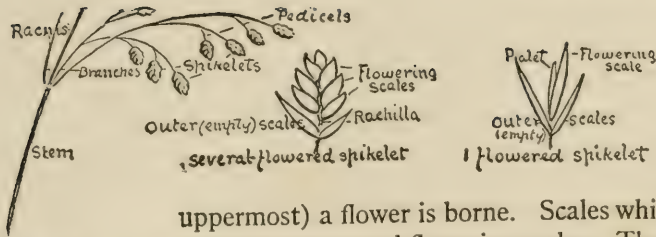 Rachis
Pedicels
Branches
Spikelets
Stem
Flowering
scales
Outer(empty) scales
Rachilla
several-flowered spikelet
Palet
Flowering
scale
Outer scales
(empty)
1 flowered spikelet
uppermost) a flower is borne. Scales